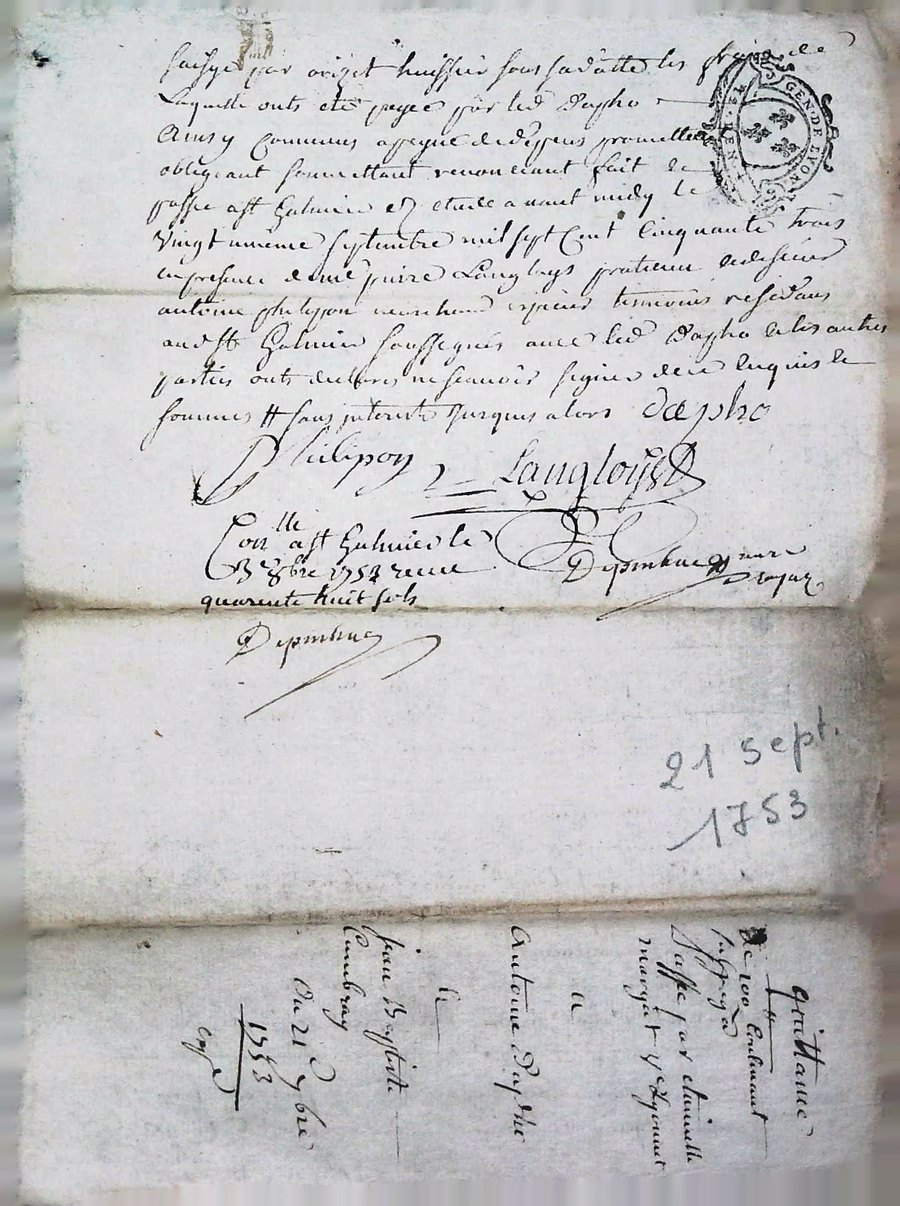 par huissier sous sa datte les frais de
Laquelle onts eté payée par led Dapho
Ainsy Convenus a peyne de depens promettant
obligeant soumettant renonceant fait et
passé a St Galmier Etude avant midy le
vingt unieme septembre mil sept Cent Cinquante trois
en presence de me pierre Langloys praticien et de sieur
antoine philipon marchand epicier tesmoins residans
aud St Galmier soussignés avec led Dapho et les autres
parties onts declarés ne scavoir signer de ce enquis le
sommes # sans interets jusques alors Dapho
Philipon Langloys
Conlle a St Galmier le
3e 8bre 1753 receu
quarente huit sols
Depinhac
Depinhac
GEN·DE LYON
21 sept.
1753
Quittance
de 100 Contenant
subroga
Passé par
marga
a
Antoine Dapho
Et
jean Baptiste
Cambray
Du 21e 7bre
1753